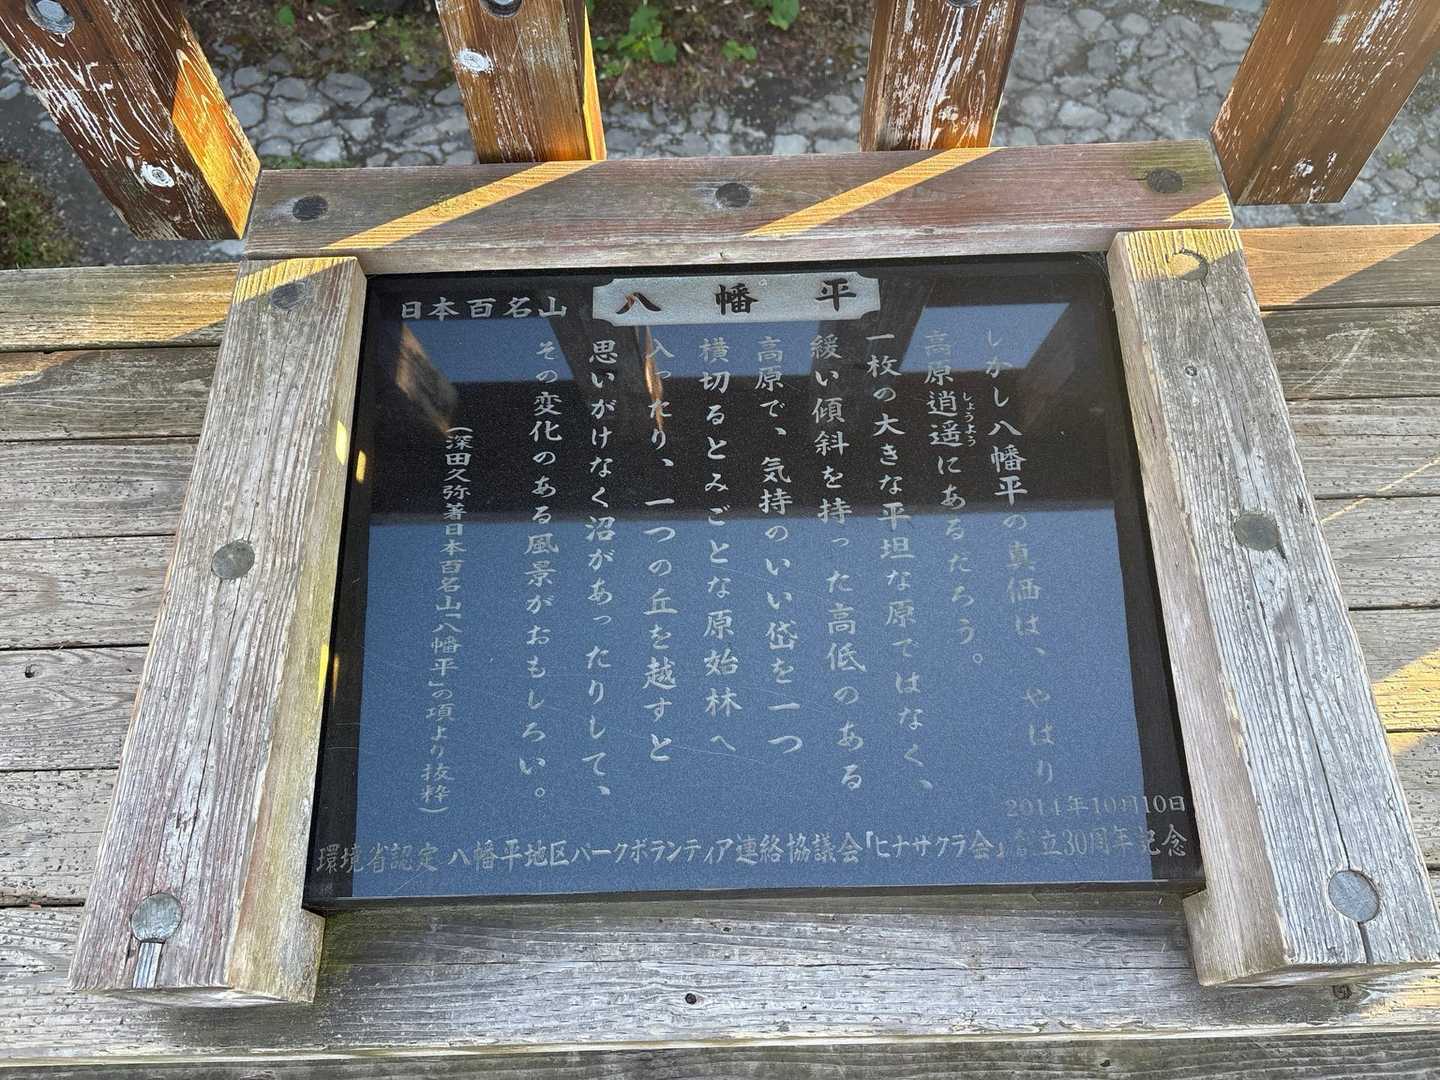 日本百名山
八幡平
しかし八幡平の真価は、やはり
高原逍遥にあるだろう。
しょうよう
一枚の大きな平坦な原ではなく、
緩い傾斜を持った高低のある
高原で、気持のいい岱を一つ
横切るとみごとな原始林へ
入ったり、一つの丘を越すと
思いがけなく沼があったりして、
その変化のある風景がおもしろい。
(深田久弥著日本百名山「八幡平」の項より抜粋)
2014年10月10日
環境省認定 八幡平地区パークボランティア連絡協議会「ヒナザクラ会」創立30周年記念